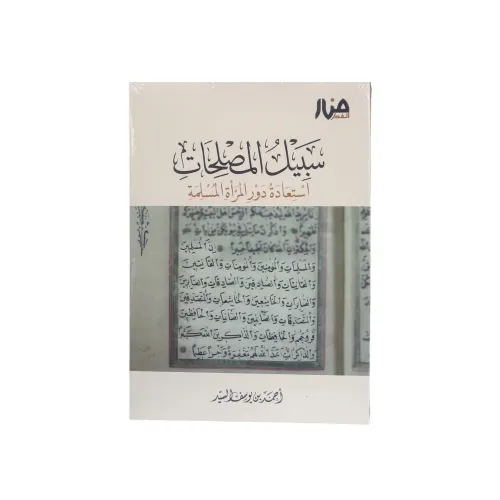 منار
الفكر
سَبِيْلُ المُصْلِحَاتِ
اسْتِعَادَةُ دَوْرِ المَرْأَةِ المُسْلِمَةِ
إن المسلمين
والمسلمات والمؤمنين والمؤمنات والقانتين
والقانتات والصادقين والصادقات والصابرين
والصابرات والخاشعين والخاشعات والمتصدقين
والمتصدقات والصائمين والصائمات والحافظين
فروجهم والحافظات والذاكرين الله كثيرا
والذاكرات أعد الله لهم مغفرة وأجرا عظيما
أحمد بن يوسف السيد